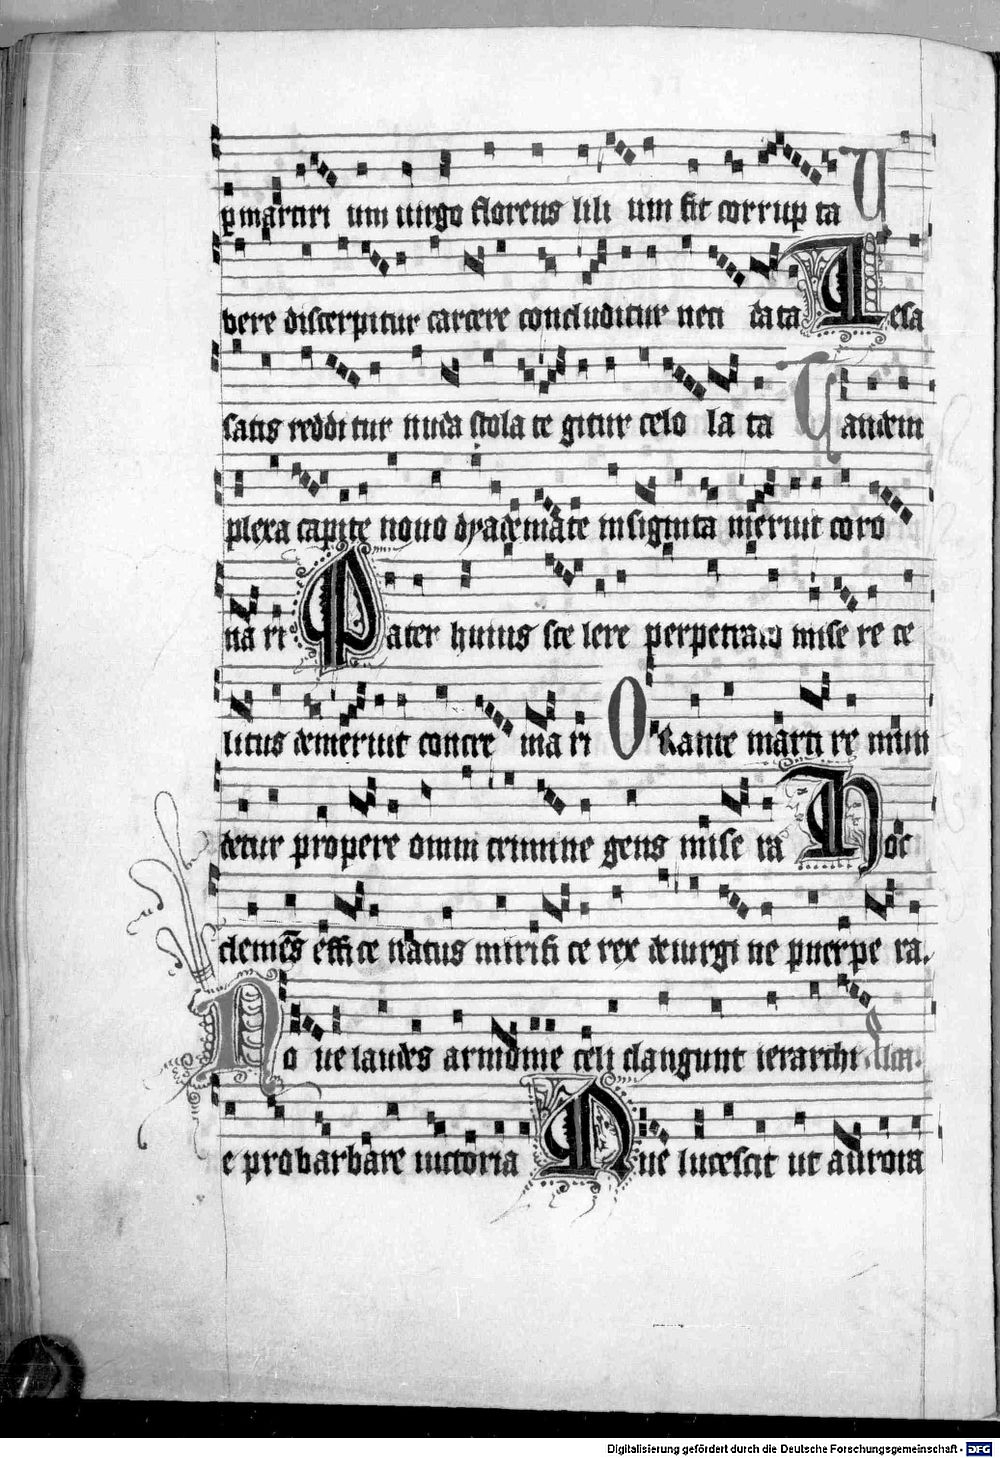 martiri um uirgo florens lili um fit corrup ta U
bere discerpitur carcere concluditur neci data Cesa
satis redditur nuda stola te gitur celo la ta Tandem
plexa capite nouo dyademate insignita meruit coro
na ri Pater huius sce lere perpetrato mise re re
litus demeruit concre ma ri Orante marti re mun
detur propere omni crimine gens mise ra Hoc
clemēs effi ce natus mirifi ce rex deiurgi ne puerpe ra.
No ue laudes celi clangunt ierarchi
e pro barbare uictoria Que lucescit ut aurora
Digitalisierung gefördert durch die Deutsche Forschungsgemeinschaft - DFG